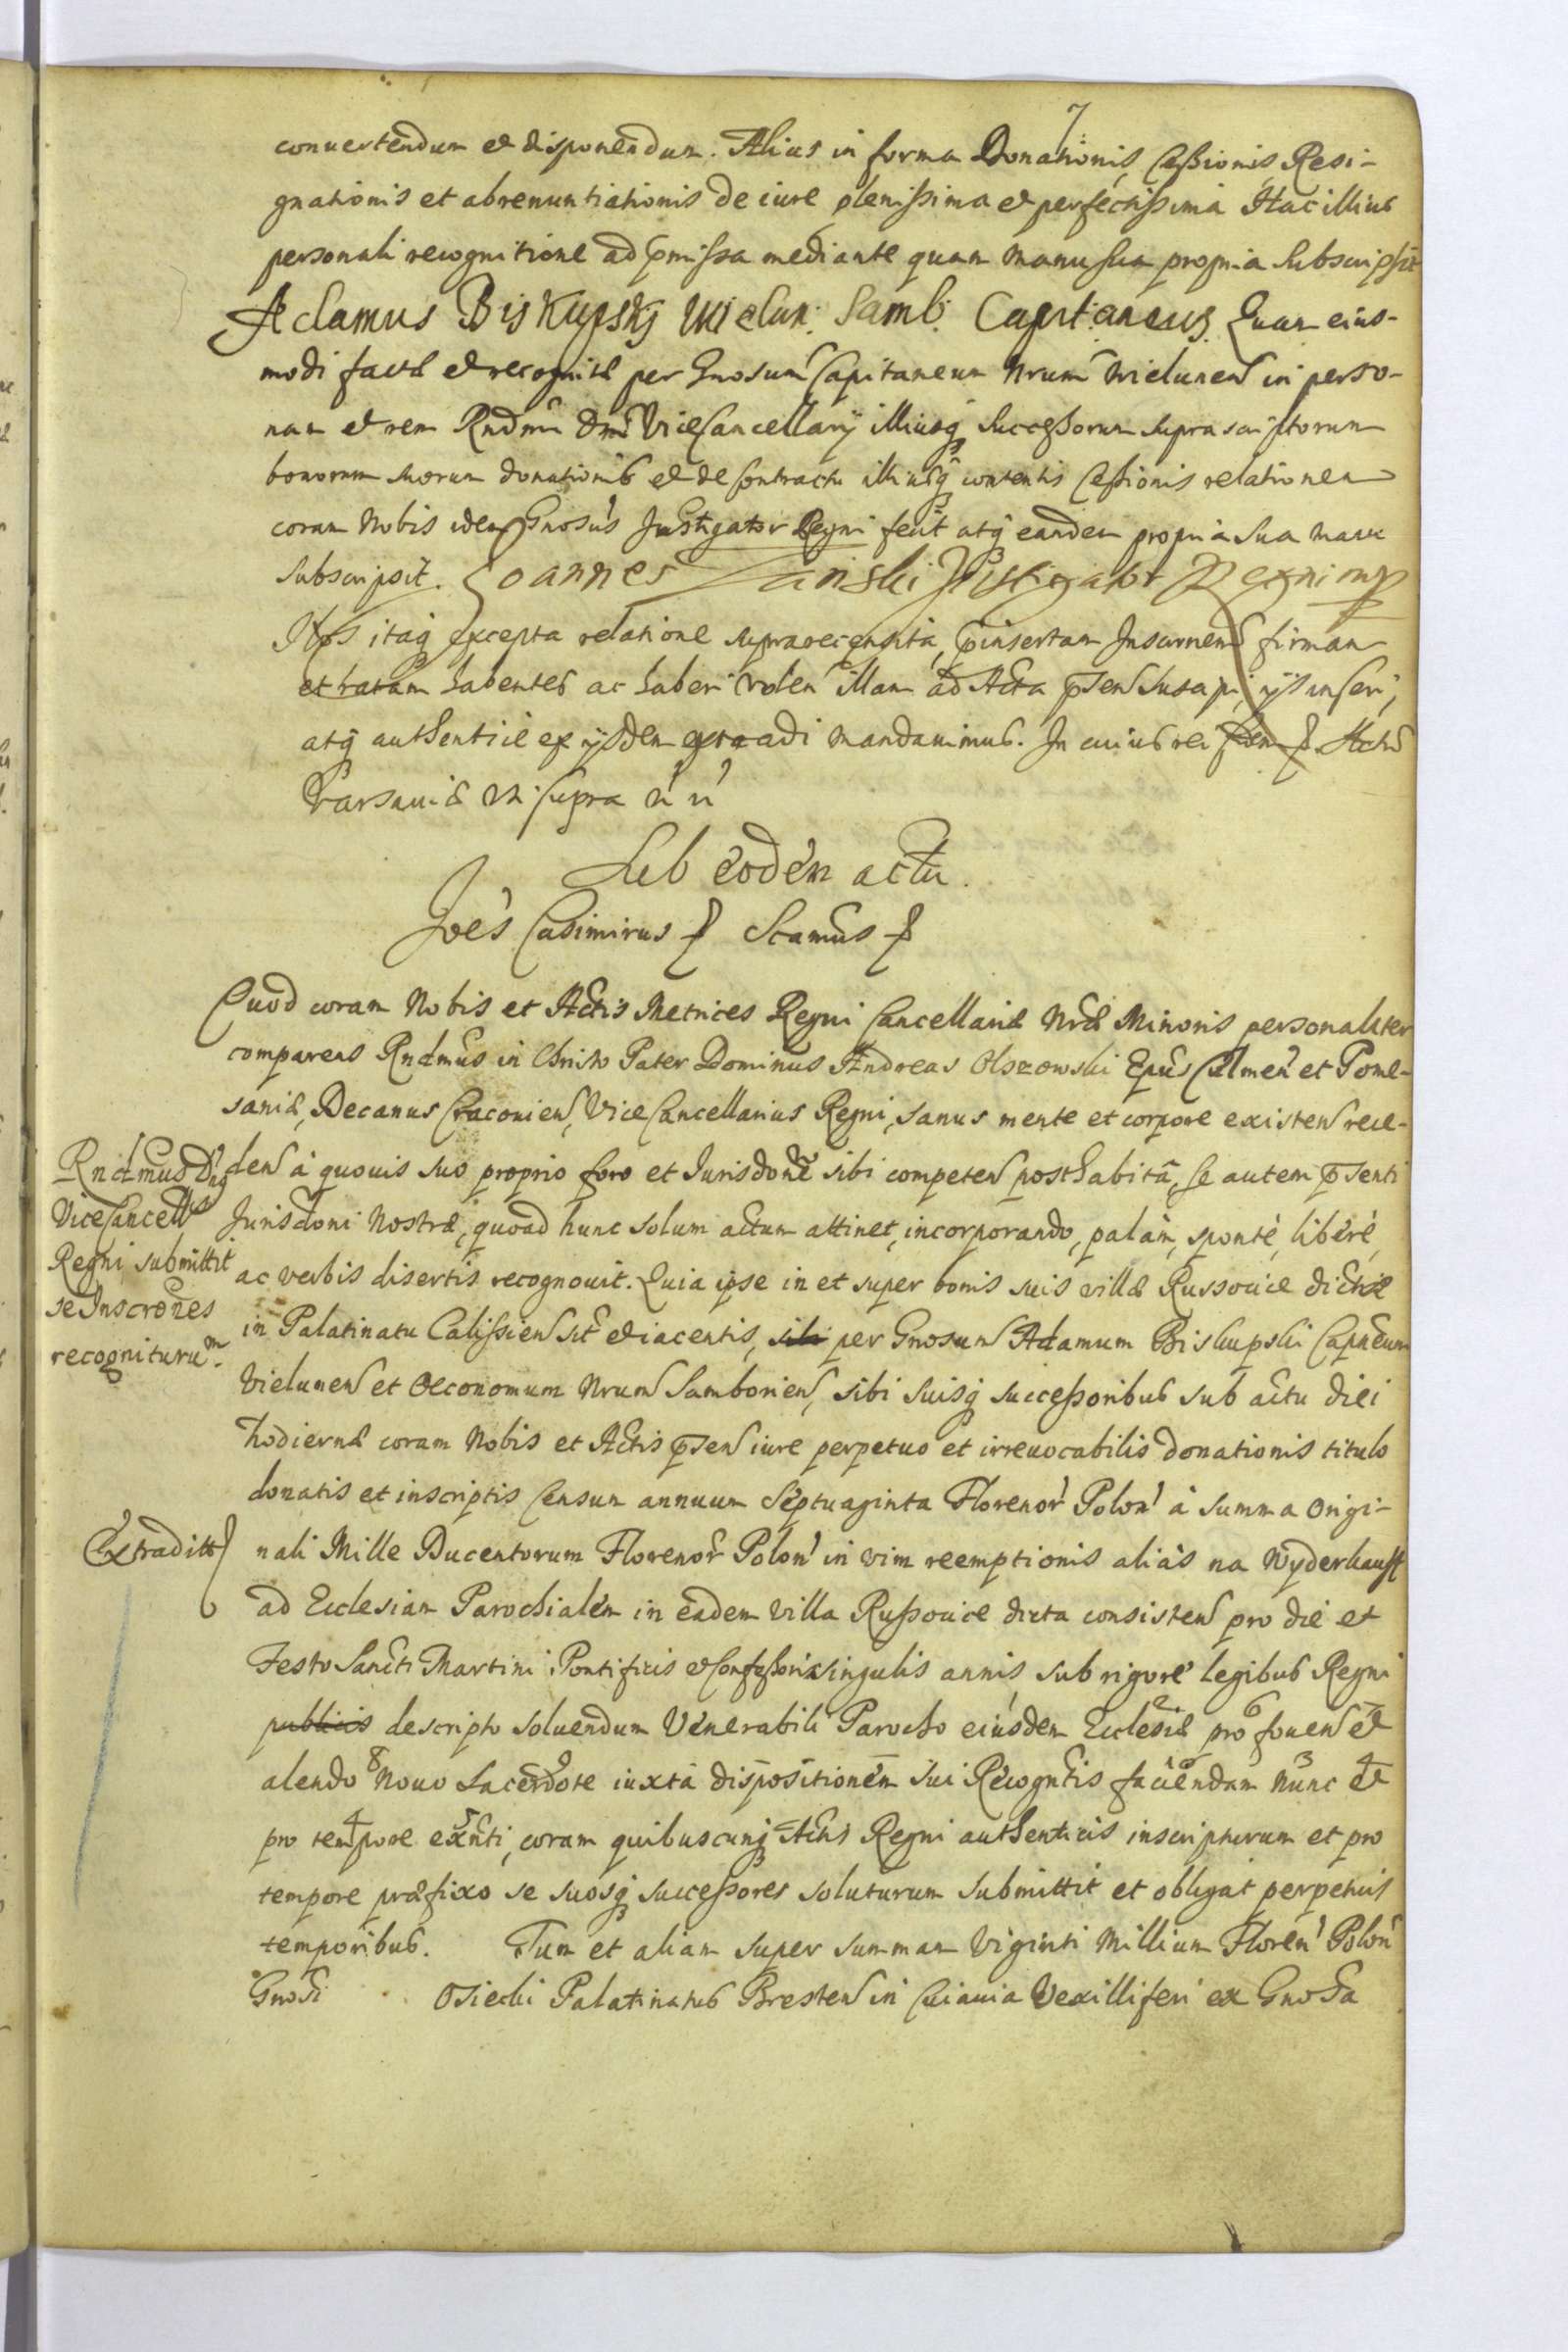 7
conuertendum et disponendum. Alias in forma Donationis, Cessionis, Resi-
gnationis et abrenuntiationis de iure plenissima et perfectissima Hac illius
personali recognitione ad pmissa mediante quam manu sua propria subscripsit
Adamus Biskupskj Wielun: Samb: Capitaneus. Quam eius-
modi factæ et recognitæ per Gnosum Capitaneum Nrum Wielunen in perso-
nam et rem Rndmi Dni ViceCancellarij illiusq Successorum suprascriptorum
bonorum suorum donationis et de contractu illiusq contentis Cessionis relationem
coram Nobis idem Gnosus Instigator Regni fecit atq eandem propria sua manu
subscripsit. Joannes Instigator Regni mp
Nos itaq excepta relatione suprarecensita, pinsertam firmam
et ratam habentes ac haberi volen illam ad Acta psen suscipi, ijs inseri,
atq authenticè ex ijsdem extradi mandauimus. In cuius rei fidem Actu
Varsauiæ Vt supra
Sub eodem actu.
Joes Casimirus Scamus
Quod coram Nobis et Actis Metrices Regni Cancellariæ Nræ Minoris personaliter
comparens Rndmus in Christo Pater Dominus Andreas Olszowski Epus Culmen et Pome-
saniæ, Decanus Cracouien, ViceCancellarius Regni, sanus mente et corpore existen rece-
den à quouis suo proprio foro et Jurisdone sibi competen posthabitâ, se autem psenti
Jurisdoni Nostræ, quoad hunc solum actum attinet, incorporando, palàm, spontè, liberè,
ac verbis disertis recognouit. Quia ipse in et super bonis suis villæ Russouice dictæ
in Palatinatu Calissien sit et iacentis, sibi per Gnosum Adamum Biskupski Capneum
Vielunen et Oeconomum Nrum Samborien, sibi suisq successoribus sub actu diei
hodiernæ coram Nobis et Actis psen iure perpetuo et irreuocabilis donationis titulo
donatis et inscriptis Censum annuum Septuaginta Florenor Polon à summa origi-
nali Mille Ducentorum Florenor Polon in vim reemptionis aliàs na Wyderkauff
ad Ecclesiam Parochialem in eadem villa Russouice dicta consisten pro die et
Festo Sancti Martini Pontificis et Confessoris singulis annis sub rigore legibus Regni
publicis descripto soluendum Venerabili Parocho eiusdem Ecclesiæ pro fouen et
alendo Nouo Sacerdote iuxta dispositionem sui Recogntis faciendam nunc et
pro tempore exnti, coram quibuscunq Actis Regni authenticis inscripturum et pro
tempore præfixo se suosq successores soluturum submittit et obligat perpetuis
temporibus. Tum et aliam super summam Viginti Millium Floren Polon
Gnosi Osiecki Palatinatus Bresten in Cuiauia Vexilliferi ex Gnosa
Rndmus Dns
ViceCancells
Regni submittit
se Inscrones
recogniturum.
Extraditt